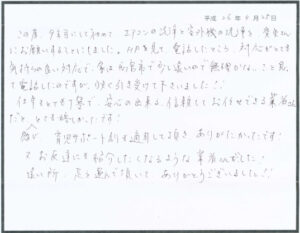 平成26年6月25日
この度、9年目にして初めて エアコンの洗浄と室外機の洗浄を
にお願いすることにしました。HPを見て電話したところ、対応がとても
気持ちの良い対応で、家は西宮市で少し遠いので無理かな、こと思
って電話したのですが、快く引き受けて下さいました!!
仕事もとても丁寧で、安心の出来る、信頼してお任せできる業者さん
だと、とても嬉しかったです!
育児サポート割を適用して頂き ありがたかったです!
お友達にも紹介したくなるような業者さんでした!
遠い所、足を運んで頂いて、ありがとうございました!!